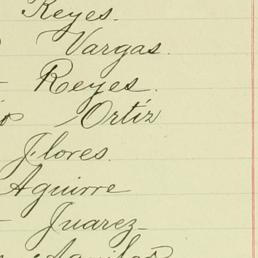 Reyes.
Vargas.
- Reyes.
Ortíz
Flores.
Aguirre
- Juarez-
Aguilar